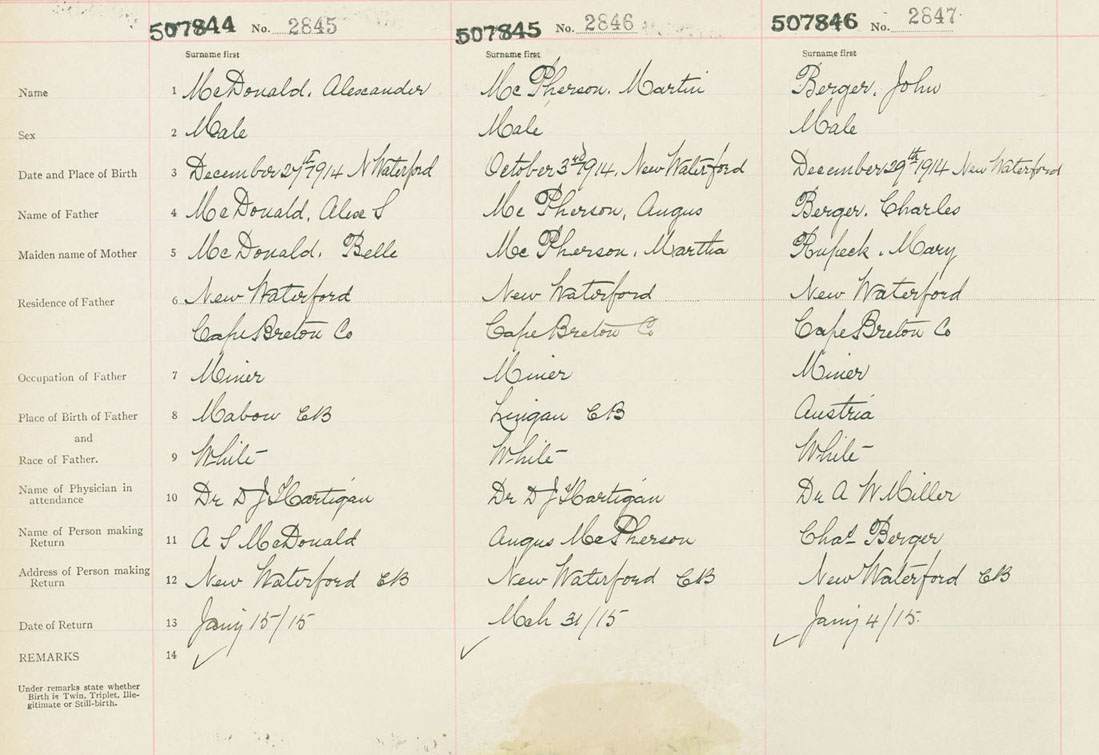 507844 No. 2845 507845 No. 2846 507846 No. 2847
Surname first Surname first Surname first
Name 1 McDonald, Alexander McPherson, Martin Berger, John
Sex 2 Male Male Male
Date and Place of Birth 3 December 1914 N Waterford October 3rd 1914, New Waterford December 29th 1914 New Waterford
Name of Father 4 McDonald, Alex S McPherson, Angus Berger, Charles
Maiden name of Mother 5 McDonald, Belle McPherson, Martha Mary
Residence of Father 6 New Waterford New Waterford New Waterford
Cape Breton Co Cape Breton Co Cape Breton Co
Occupation of Father 7 Miner Miner Miner
Place of Birth of Father 8 Mabow CB Lingan CB Austria
and
Race of Father. 9 White White White
Name of Physician in
attendance 10 Dr D J Hartigan Dr D J Hartigan Dr A W Miller
Name of Person making
Return 11 A S McDonald Angus McPherson Chas Berger
Address of Person making
Return 12 New Waterford CB New Waterford CB New Waterford CB
Date of Return 13 Jany 15/15 Mch 31/15 Jany 4/15.
REMARKS 14
Under remarks state whether
Birth is Twin, Triplet, Ille-
gitimate or Still-birth.